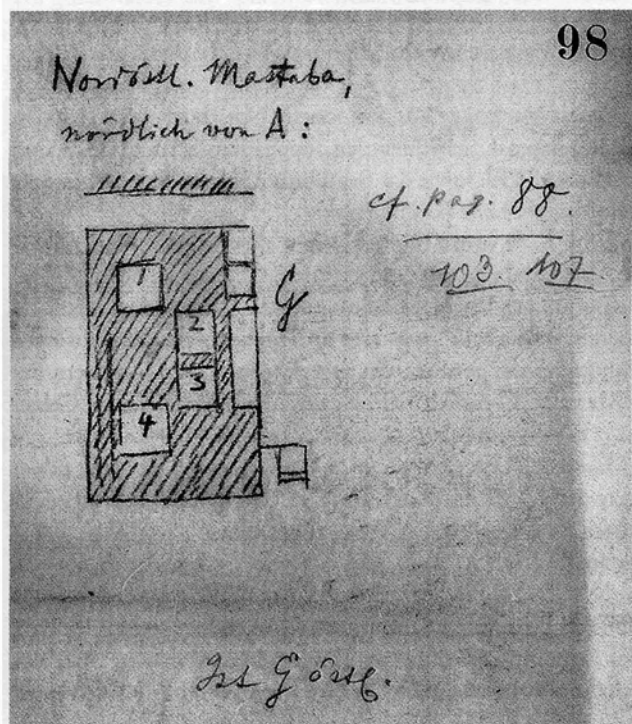 98
Nordöstl. Mastaba,
nördlich von A :
cf. pag. 88.
103. 107.
1
G
2
3
4
Ist G östl.